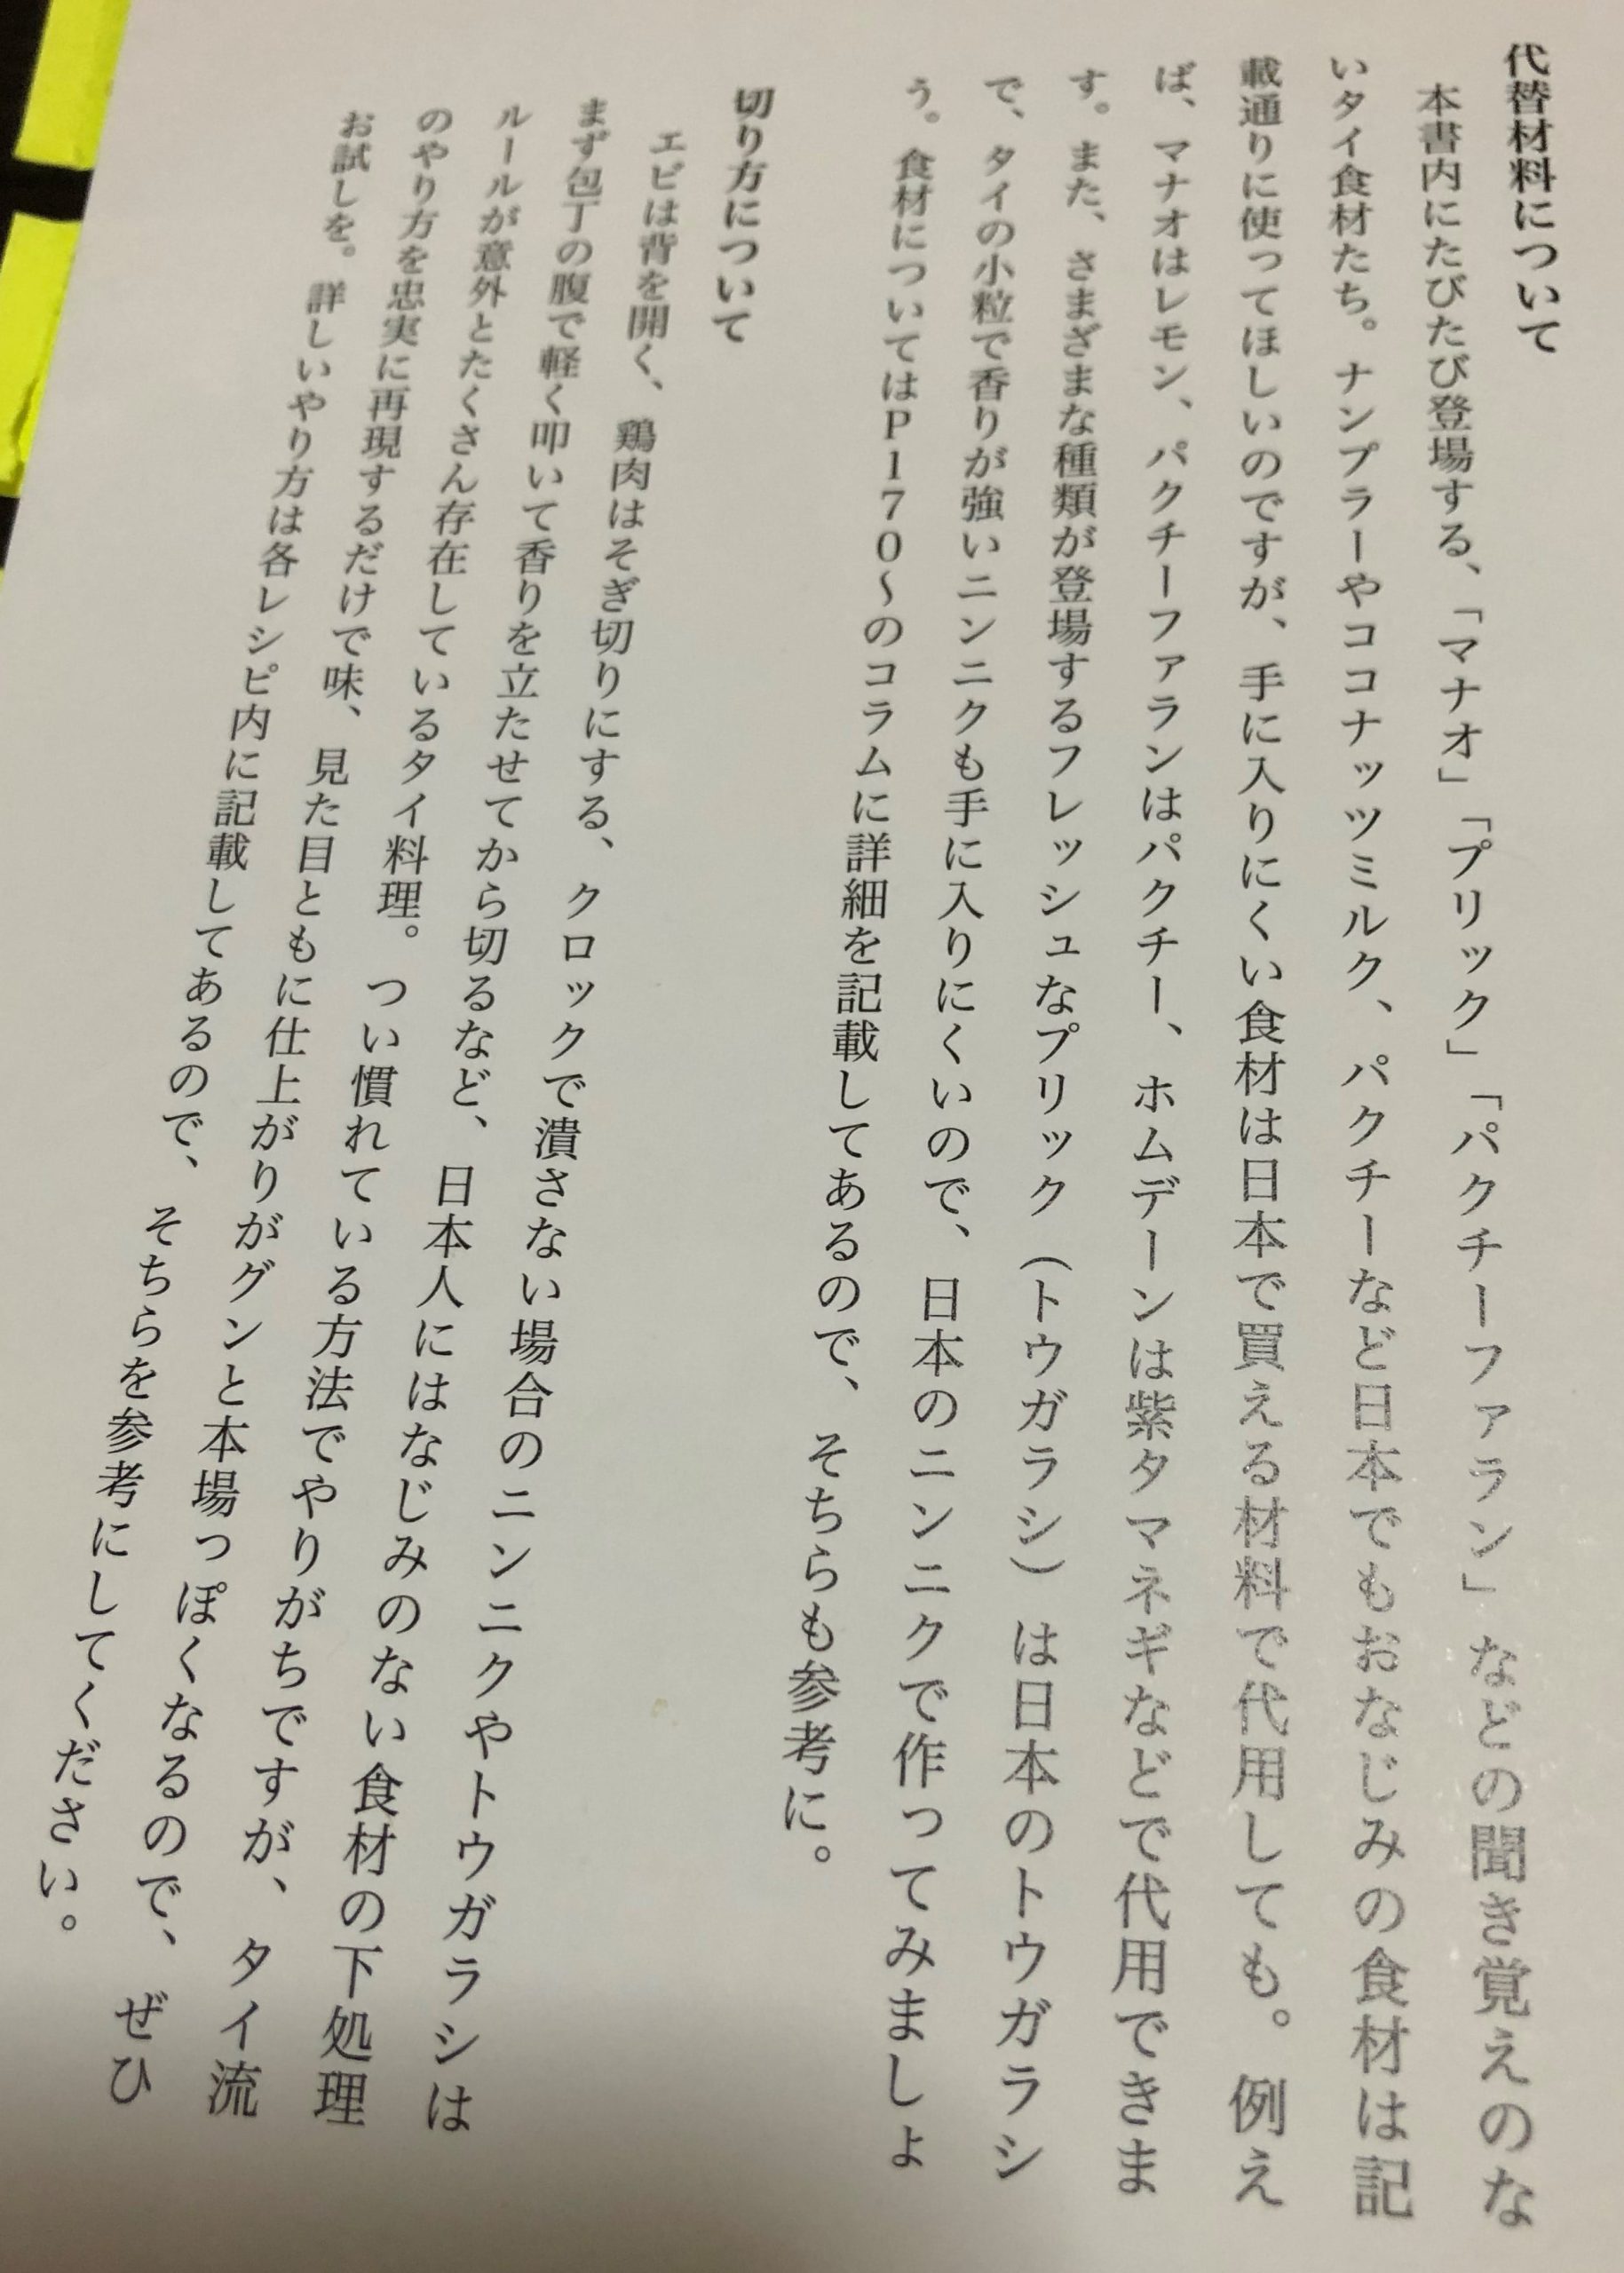 代替材料について
本書内にたびたび登場する、「マナオ」「プリック」「パクチーファラン」などの聞き覚えのな
いタイ食材たち。ナンプラーやココナッツミルク、パクチーなど日本でもおなじみの食材は記
載通りに使ってほしいのですが、手に入りにくい食材は日本で買える材料で代用しても。例え
ば、マナオはレモン、パクチーファランはパクチー、ホムデーンは紫タマネギなどで代用できま
す。また、さまざまな種類が登場するフレッシュなプリック（トウガラシ）は日本のトウガラシ
で、タイの小粒で香りが強いニンニクも手に入りにくいので、日本のニンニクで作ってみましょ
う。食材についてはP170〜のコラムに詳細を記載してあるので、そちらも参考に。
切り方について
エビは背を開く、鶏肉はそぎ切りにする、クロックで潰さない場合のニンニクやトウガラシは
まず包丁の腹で軽く叩いて香りを立たせてから切るなど、日本人にはなじみのない食材の下処理
ルールが意外とたくさん存在しているタイ料理。つい慣れている方法でやりがちですが、タイ流
のやり方を忠実に再現するだけで味、見た目ともに仕上がりがグンと本場っぽくなるので、ぜひ
お試しを。詳しいやり方は各レシピ内に記載してあるので、そちらを参考にしてください。